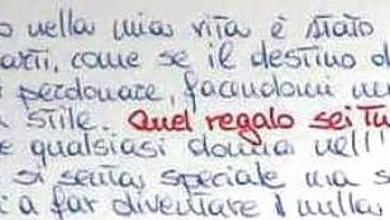 o nella mia vita è stato
arti, come se il destino d
i perdonare, facendomi un
stile. Quel regalo sei tu
e qualsiasi donna nell'
si senta speciale ma s
i a far diventare il nulla